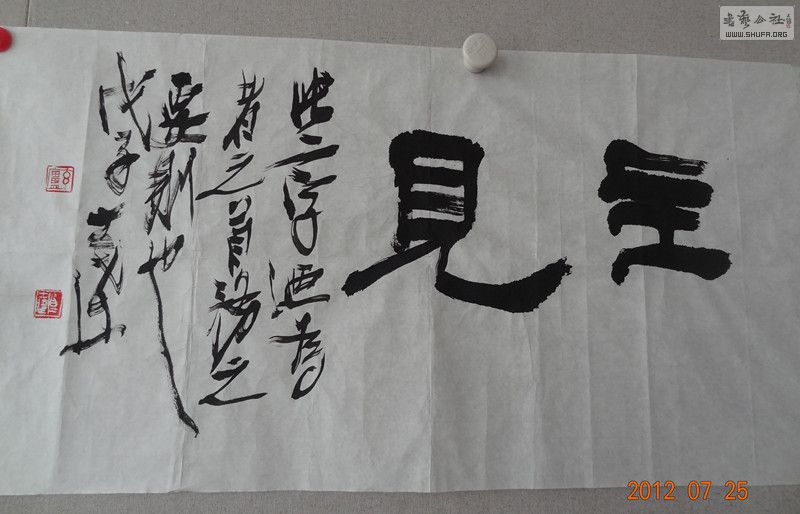 主見
此二字迺為
者之首務之
要則也
戊子
書藝公社
WWW.SHUFA.ORG
2012 07 25